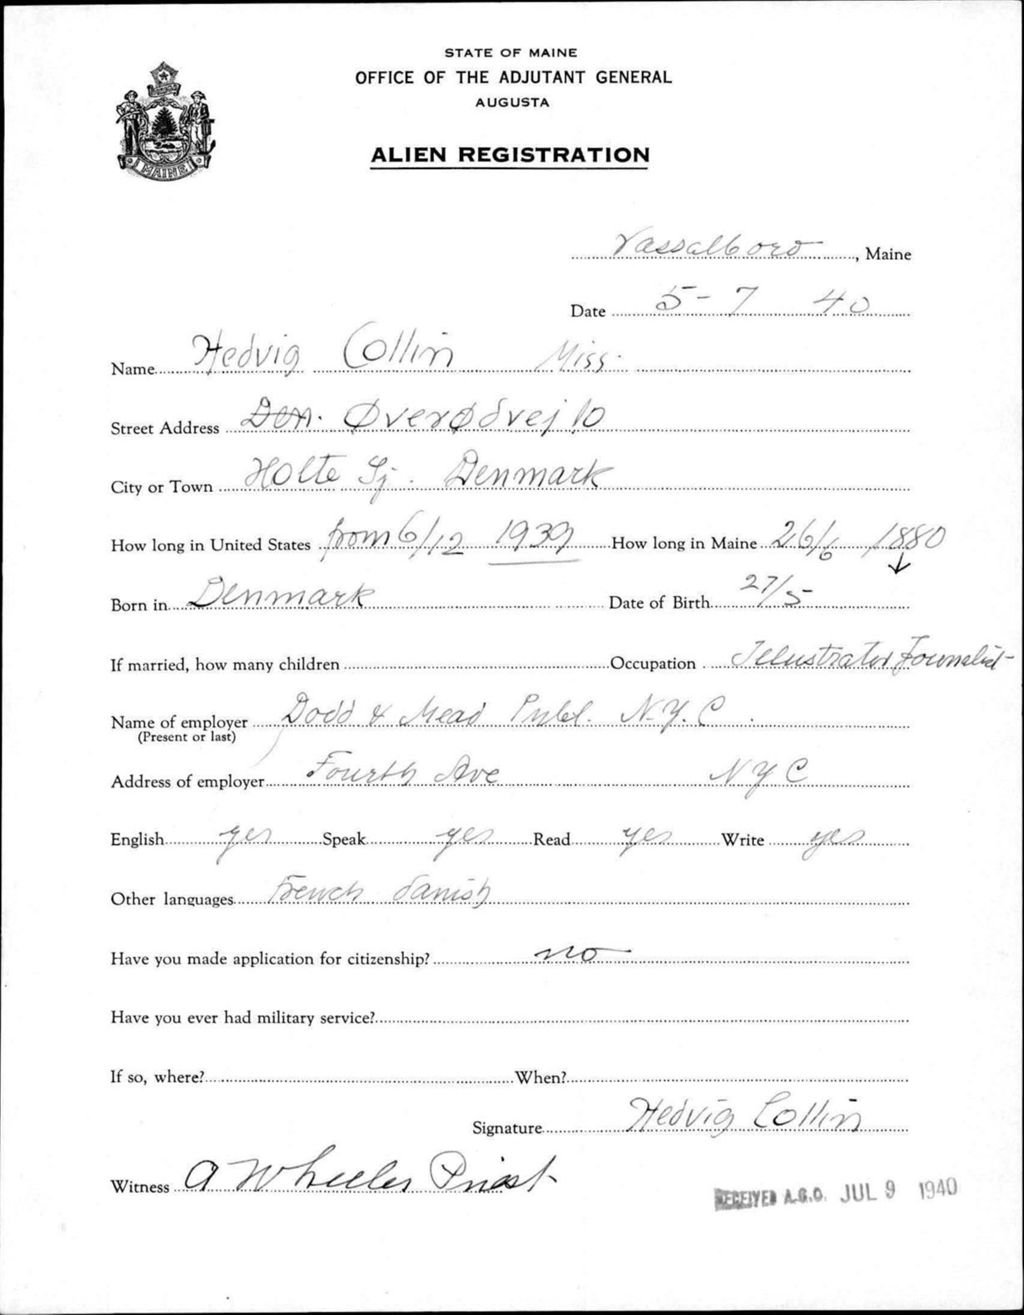 STATE OF MAINE
OFFICE OF THE ADJUTANT GENERAL
AUGUSTA
ALIEN REGISTRATION
MAINE
Vassalboro, Maine
Date 5-7 40
Name Hedvig Collin Miss.
Street Address Den. Øverødvej 10
City or Town Holte Sj. Denmark
How long in United States from 6/12 1939 How long in Maine 26/6 1880
Born in Denmark Date of Birth 27/5
If married, how many children Occupation Illustrator Journalist
Name of employer Dodd & Mead Publ. N.Y.C.
(Present or last)
Address of employer Fourth Ave NYC
English yes Speak yes Read yes Write yes
Other languages French Danish
Have you made application for citizenship? no
Have you ever had military service?
If so, where? When?
Signature Hedvig Collin
Witness A Wheeler Priest
RECEIVED A.G.O. JUL 9 1940